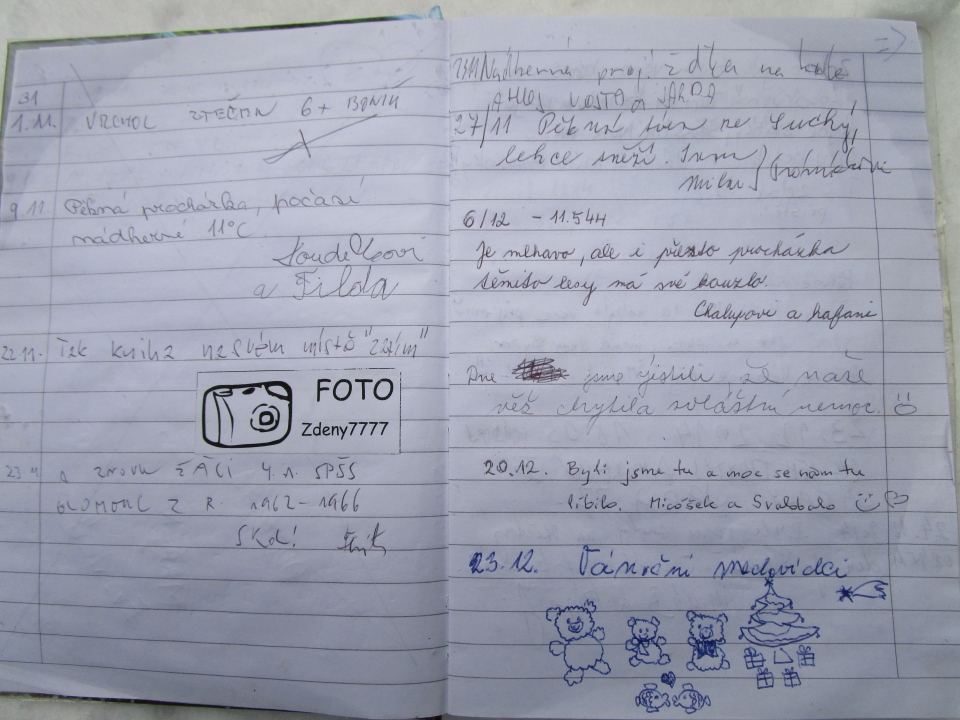 31
1.11. VRCHOL ZTEČEN 6 + BONIŠ
9.11. Pěkná procházka, počasí
nádherné 11°C
a Filda
22.11. Tak kniha na svém místě "zas/m"
FOTO
Zdeny7777
23.11 A ZNOVU ŽÁCI 4.A SPŠS
OLOMOUC Z R. 1962-1966
SKOL!
=>
Nádherná proj. žďka na
AHOJ VOSTO a JARDA
27/11 Pěkná túra na Suchý,
lehce sněží.
6/12 - 11.544
Je mlhavo, ale i přesto procházka
těmito lesy má své kouzlo.
Chalupovi a hafani
Dne jsme zjistili, že naše
věž chytila zvláštní nemoc.
20.12. Byli jsme tu a moc se nám tu
líbilo. Micóšek a Svalobalo
23.12. Vánoční medovídci